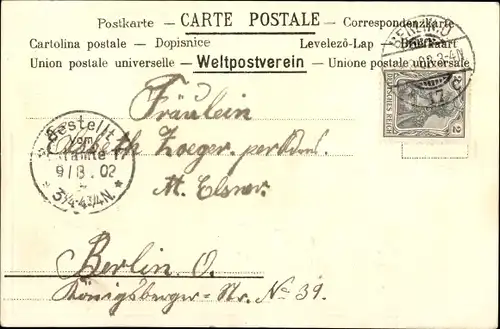 Postkarte — CARTE POSTALE — Correspondenzkarte
Cartolina postale — Dopisnice Levelező-Lap — Briefkaart
Union postale universelle — Weltpostverein — Unione postale universale
BERLIN, O
3-4N
17 C
DEUTSCHES REICH
2
Bestellt
vom
Postamte 17
9/8.02
3¼-4¾N.
Fräulein
Elsbeth Zoeger. per Adr.
M. Elsner.
Berlin. O.
Königsberger-Str. No 39.